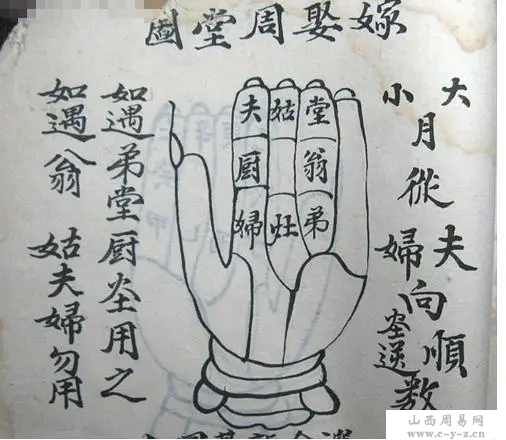 嫁娶周堂圖
大小
月從
夫婦
向
順逆
數
堂翁弟
姑灶
夫厨婦
如遇弟堂厨用之
如遇翁 姑夫婦勿用
山西周易网
-c-y-z.cn-